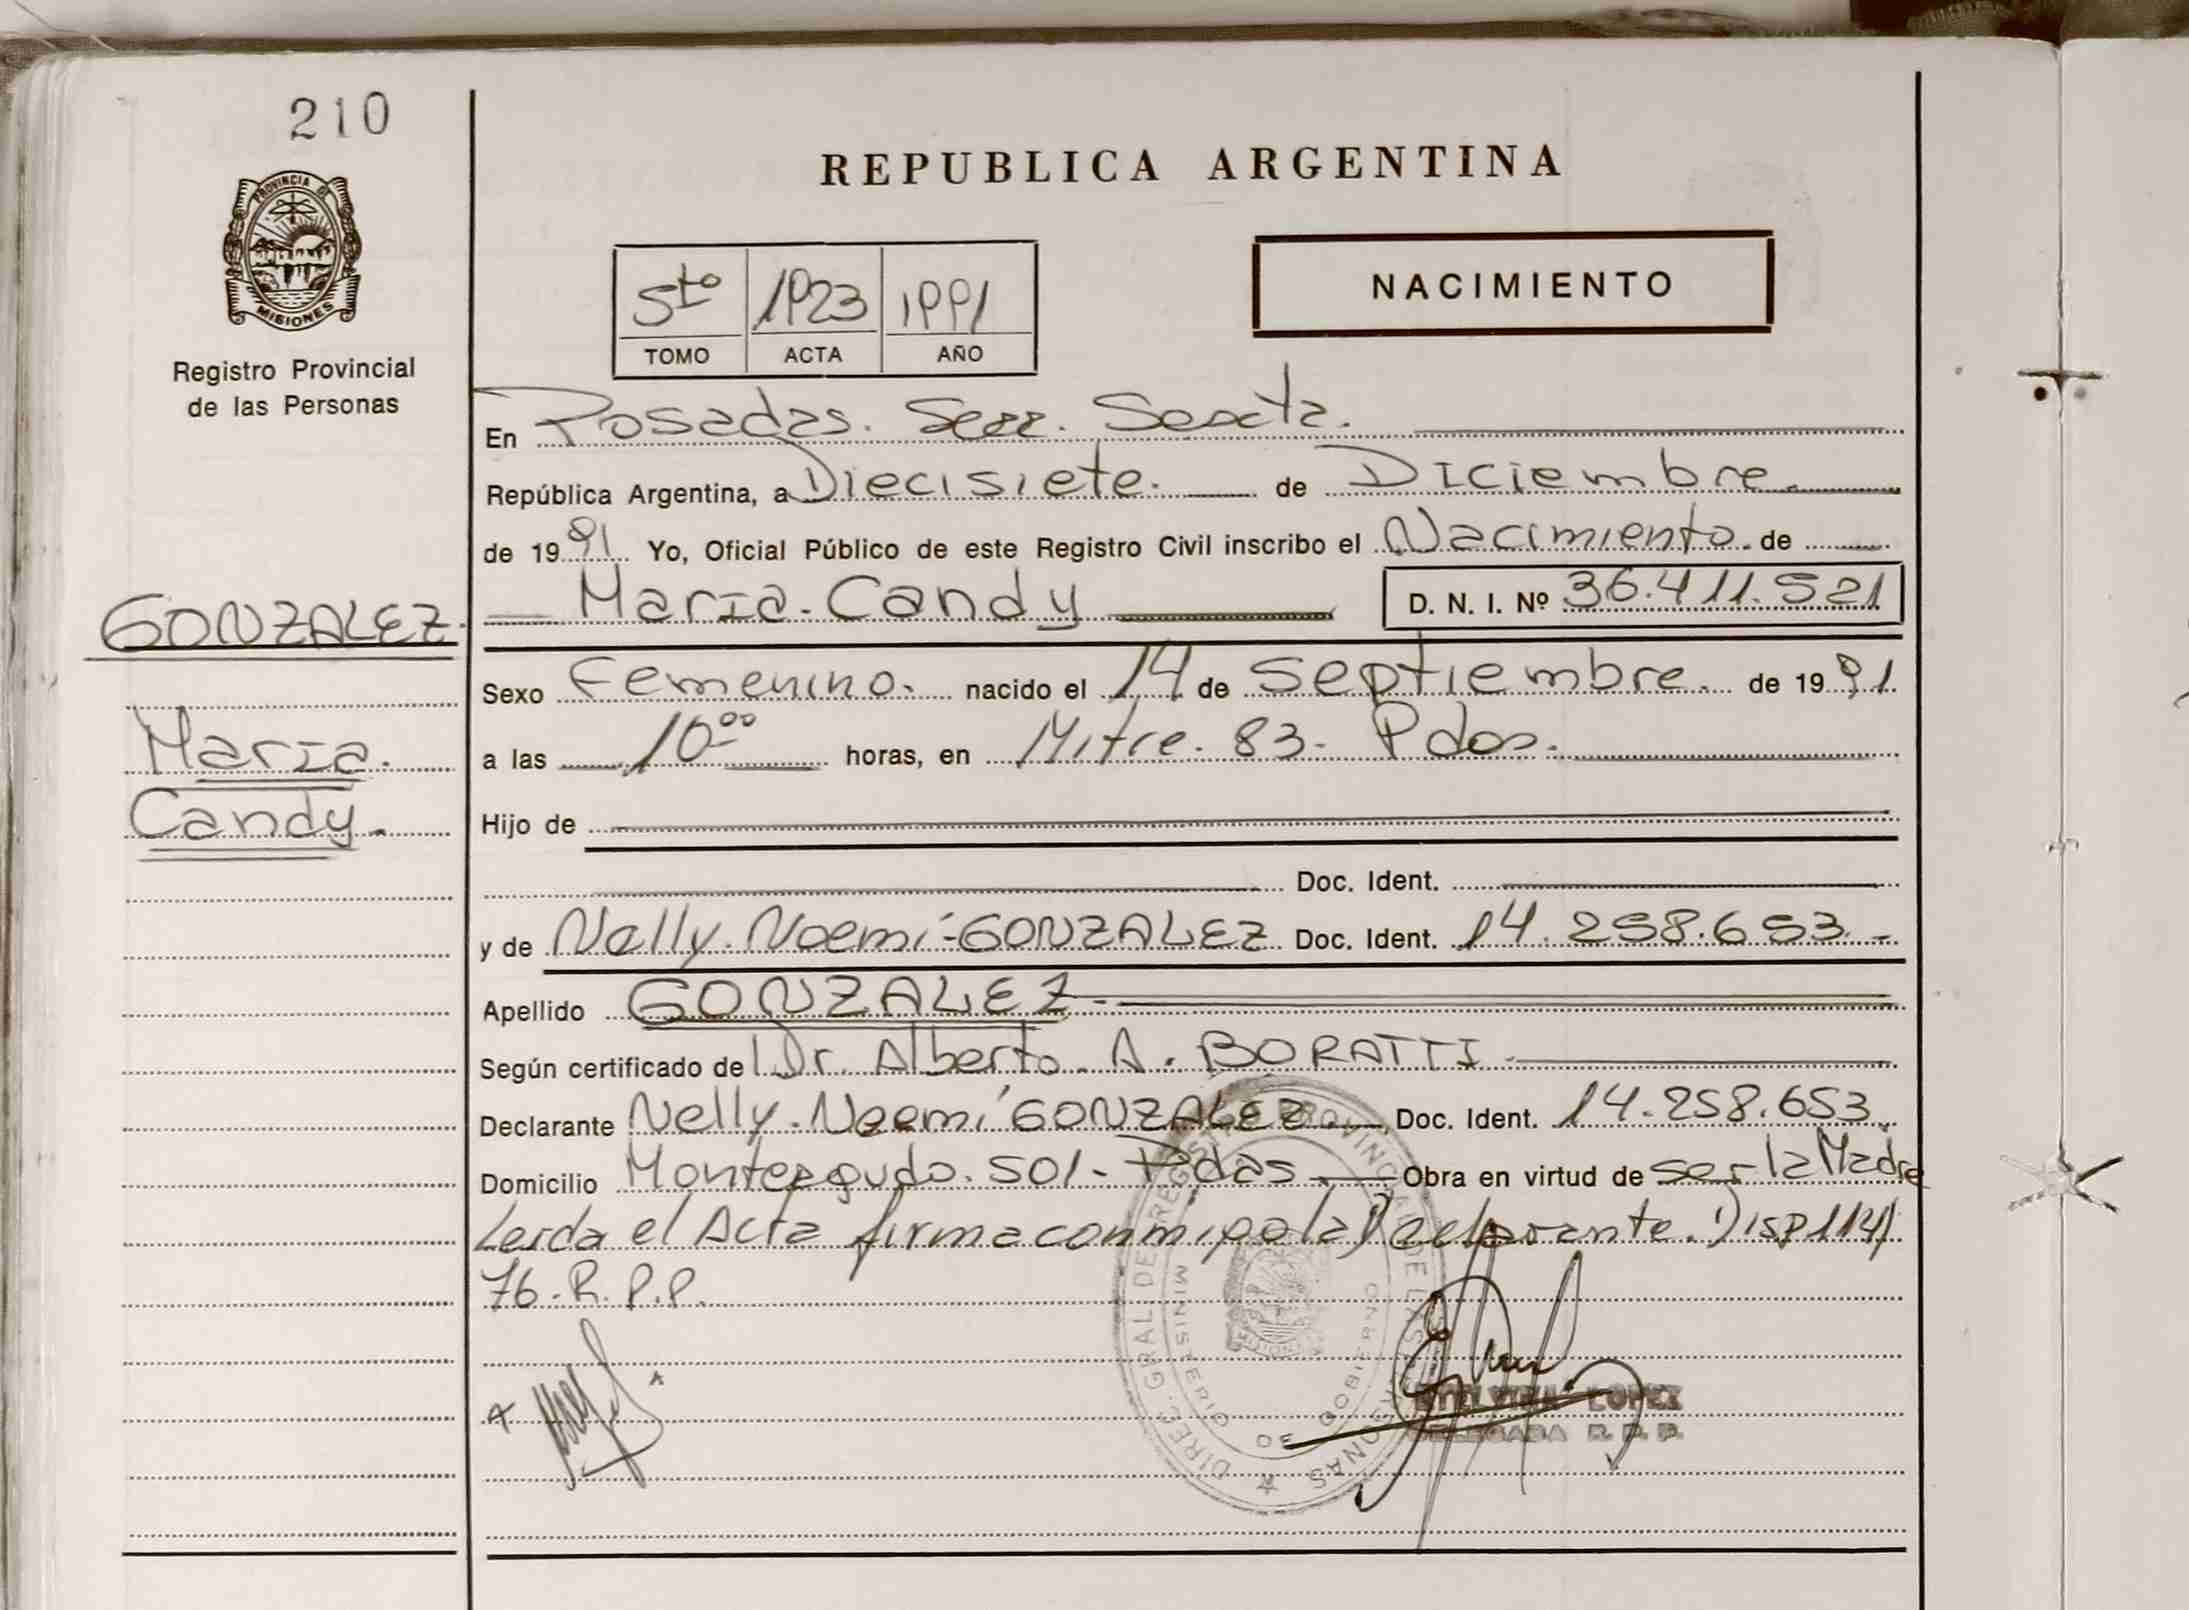 210
PROVINCIA DE
MISIONES
Registro Provincial
de las Personas
GONZALEZ.
Maria.
Candy.
REPUBLICA ARGENTINA
5to 1923 1991
TOMO ACTA AÑO
NACIMIENTO
En Posadas. Secc. Sexta.
República Argentina, a Diecisiete. de Diciembre.
de 1991 Yo, Oficial Público de este Registro Civil inscribo el Nacimiento. de
Maria. Candy D. N. I. Nº 36.411.521
Sexo Femenino. nacido el 14 de septiembre. de 1991
a las 10 00 horas, en Mitre. 83. Pdas.
Hijo de
Doc. Ident.
y de Nelly. Noemí-GONZALEZ Doc. Ident. 14.258.653.-
Apellido GONZALEZ.
Según certificado de Dr. Alberto. A. BORATTI.
Declarante Nelly. Noemí GONZALEZ Doc. Ident. 14.258.653.
Domicilio Monteagudo. 501- Pdas. Obra en virtud de ser la Madre
Leida el Acta firma conmigo la Declarante. Disp 114/
76. R. P.P.
DIREC. GRAL DE REGISTRO PROVINCIAL DE LAS PERSONAS
MINISTERIO DE GOBIERNO
MISIONES
ETELVINA LOPEZ
DELEGADA R. P. P.